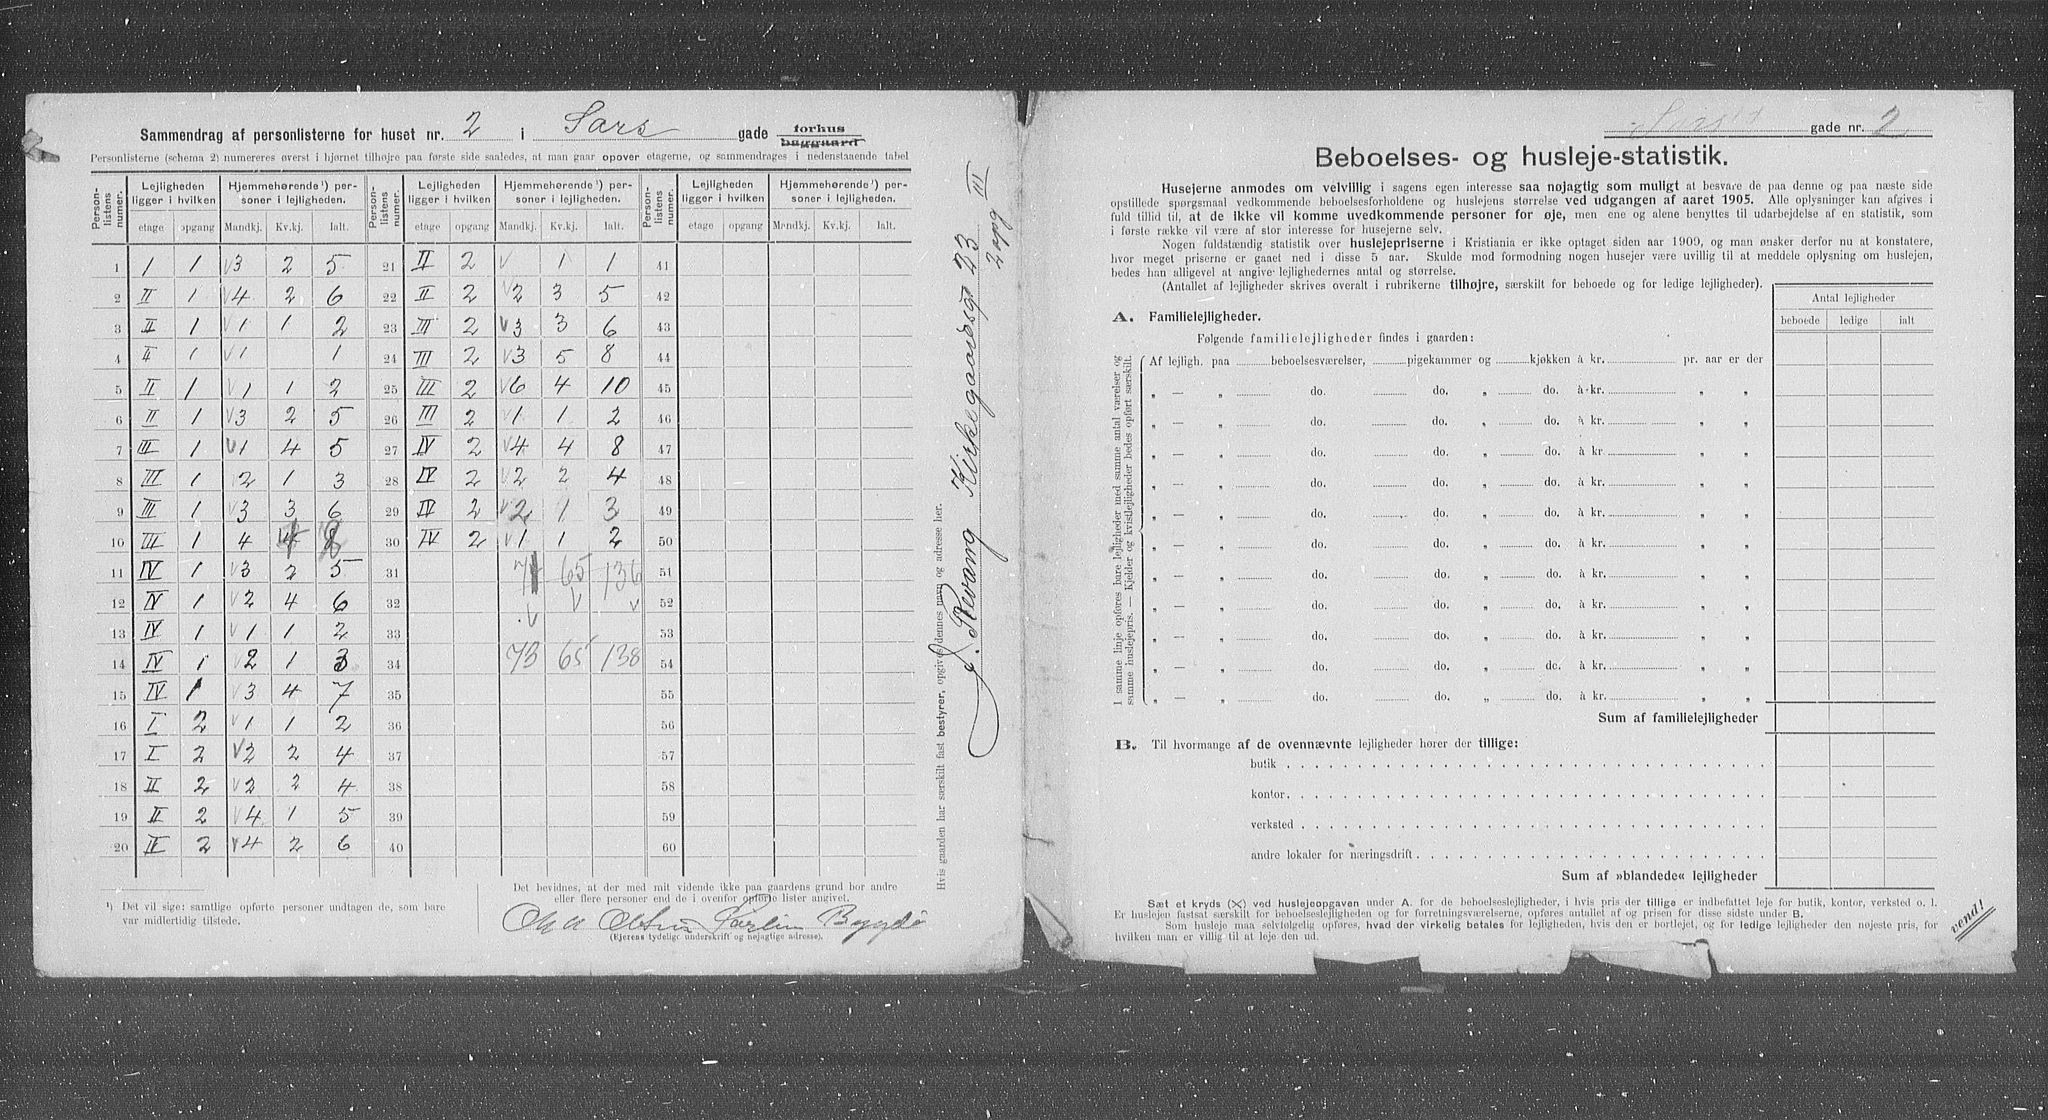 Sammendrag af personlisterne for huset nr. 2 i Sars gade forhus
baggaard
Personlisterne (schema 2) numereres øverst i hjørnet tilhøjre paa første side saaledes, at man gaar opover etagerne, og sammendrages i nedenstaaende tabel
Person-listens numer. Lejligheden ligger i hvilken Hjemmehørende¹) personer i lejligheden. Person-listens numer. Lejligheden ligger i hvilken Hjemmehørende¹) personer i lejligheden. Person-listens numer. Lejligheden ligger i hvilken Hjemmehørende¹) personer i lejligheden.
etage opgang Mandkj. Kv.kj. Ialt. etage opgang Mandkj. Kv.kj. Ialt. etage opgang Mandkj. Kv.kj. Ialt.
1 1 1 v3 2 5 21 II 2 v 1 1 41
2 II 1 v4 2 6 22 II 2 v2 3 5 42
3 II 1 v1 1 2 23 III 2 v3 3 6 43
4 II 1 v1 1 24 III 2 v3 5 8 44
5 II 1 v1 1 2 25 III 2 v6 4 10 45
6 II 1 v3 2 5 26 III 2 v1 1 2 46
7 III 1 v1 4 5 27 IV 2 v4 4 8 47
8 III 1 2 1 3 28 IV 2 v2 2 4 48
9 III 1 v3 3 6 29 IV 2 v2 1 3 49
10 III 1 4 4 8 30 IV 2 v1 1 2 50
11 IV 1 v3 2 5 31 71 65 136 51
12 IV 1 v2 4 6 32 v v 52
13 IV 1 v1 1 2 33 v 53
14 IV 1 v2 1 3 34 73 65 138 54
15 IV 1 v3 4 7 35 55
16 I 2 v1 1 2 36 56
17 I 2 v2 2 4 37 57
18 II 2 v2 2 4 38 58
19 II 2 v4 1 5 39 59
20 II 2 v4 2 6 40 60
¹) Det vil sige: samtlige opførte personer undtagen de, som bare
var midlertidig tilstede.
Det bevidnes, at der med mit vidende ikke paa gaardens grund bor andre
eller flere personer end de i ovenfor opførte lister angivet.
Bygdø
(Ejerens tydelige underskrift og nøjagtige adresse).
Hvis gaarden har særskilt fast bestyrer, opgives dennes navn og adresse her.
Kirkegaardsg 23 III
2 opg
gade nr. 2
Beboelses- og husleje-statistik.
Husejerne anmodes om velvillig i sagens egen interesse saa nøjagtig som muligt at besvare de paa denne og paa næste side
opstillede spørgsmaal vedkommende beboelsesforholdene og huslejens størrelse ved udgangen af aaret 1905. Alle oplysninger kan afgives i
fuld tillid til, at de ikke vil komme uvedkommende personer for øje, men ene og alene benyttes til udarbejdelse af en statistik, som
i første række vil være af stor interesse for husejerne selv.
Nogen fuldstændig statistik over huslejepriserne i Kristiania er ikke optaget siden aar 1900, og man ønsker derfor nu at konstatere,
hvor meget priserne er gaaet ned i disse 5 aar. Skulde mod formodning nogen husejer være uvillig til at meddele oplysning om huslejen,
bedes han alligevel at angive lejlighedernes antal og størrelse.
(Antallet af lejligheder skrives overalt i rubrikerne tilhøjre, særskilt for beboede og for ledige lejligheder).
Antal lejligheder
beboede ledige ialt
A. Familielejligheder.
Følgende familielejligheder findes i gaarden:
I samme linje opføres bare lejligheder med samme antal værelser og
samme huslejepris. — Kjelder og kvistlejligheder bedes opført særskilt.
Af lejligh. paa beboelsesværelser, pigekammer og kjøkken à kr. pr. aar er der
„ — „ do. do. „ do. à kr. „ „
„ — „ do. do. „ do. à kr. „ „
„ — „ do. do. „ do. à kr. „ „
„ — „ do. do. „ do. à kr. „ „
„ — „ do. do. „ do. à kr. „ „
„ — „ do. do. „ do. à kr. „ „
„ — „ do. do. „ do. à kr. „ „
„ — „ do. do. „ do. à kr. „ „
„ — „ do. do. „ do. à kr. „ „
„ — „ do. do. „ do. à kr. „ „
„ — „ do. do. „ do. à kr. „ „
Sum af familielejligheder
B. Til hvormange af de ovennævnte lejligheder hører der tillige:
butik
kontor
verksted
andre lokaler for næringsdrift
Sum af »blandede« lejligheder
Sæt et kryds (X) ved huslejeopgaven under A. for de beboelseslejligheder, i hvis pris der tillige er indbefattet leje for butik, kontor, verksted o. l.
Er huslejen fastsat særskilt for beboelseslejligheden og for forretningsværelserne, opføres antallet af og prisen for disse sidste under B.
Som husleje maa selvfølgelig opføres, hvad der virkelig betales for lejligheden, hvis den er bortlejet, og for ledige lejligheder den nøjeste pris, for
hvilken man er villig til at leje den ud.
vend!